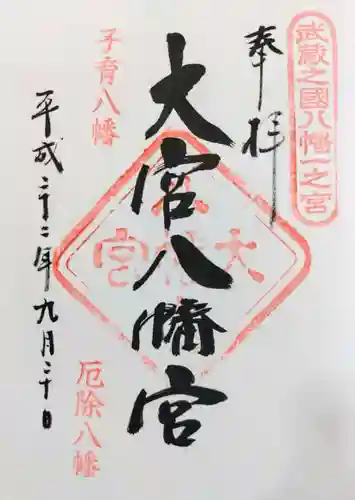 武蔵之國八幡一之宮
奉拝
大宮八幡宮
子育八幡
厄除八幡
平成二十二年九月二十日